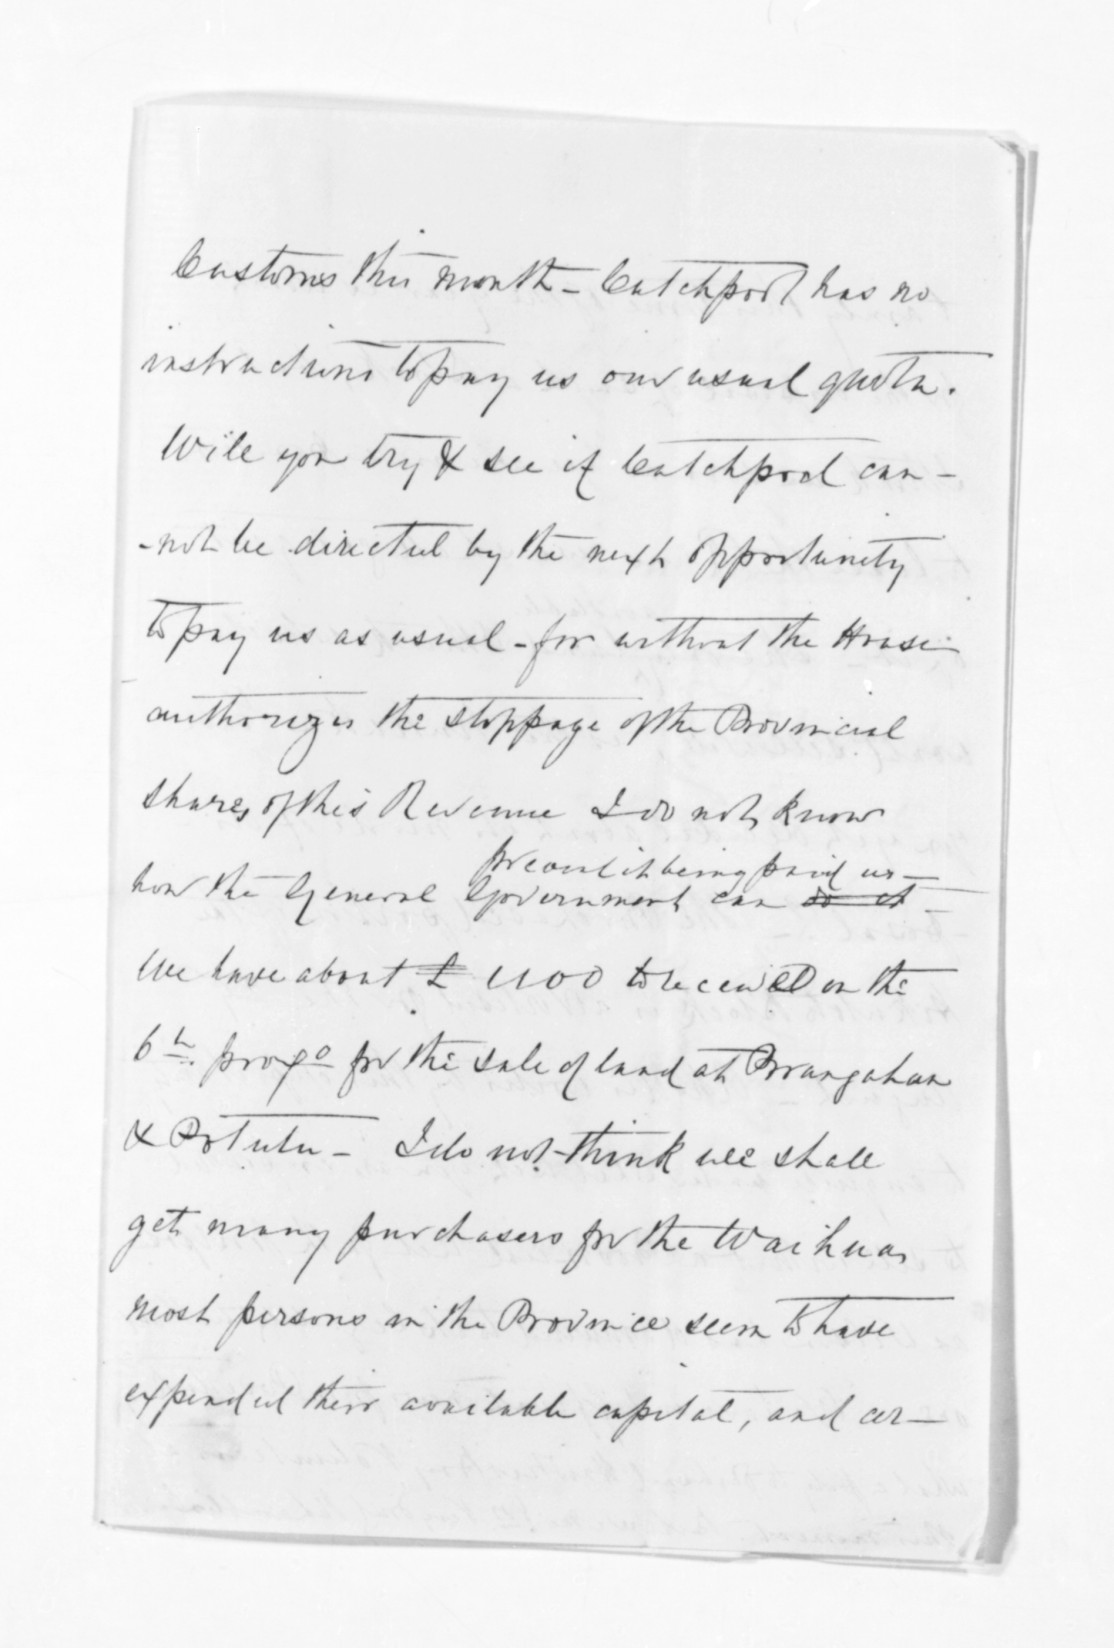 Customs this month – Catchpool has no
instructions to pay us our usual quota.
Will you try & see if Catchpool can-
-not be directed by the next opportunity
to pay us as usual – for without the House
authorizes the stoppage of the Provincial
shares of this Revenue I do not know
prevent it being paid us –
how the General Government can do it –
We have about £1100 to receive on the
6th. proxo for the sale of land at Porangahau
& Potutu – I do not think we shall
get many purchasers for the Waihua,
most persons in the Province seem to have
expended their available capital, and cer-